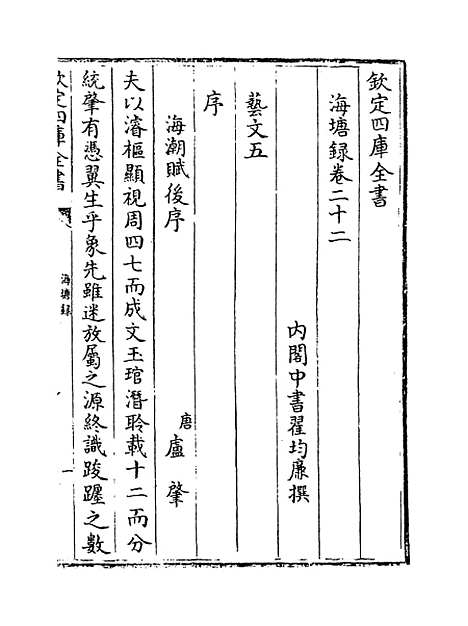 欽定四庫全書
海塘録卷二十二
內閣中書翟均廉撰
藝文五
序
海潮賦後序
唐盧肇
夫以濬樞顯視周四七而成文玉琯潛聆載十二而分
統肇有憑翼生乎象先雖迷放屬之源終識踆躔之數
欽定四庫全書
海塘録
一